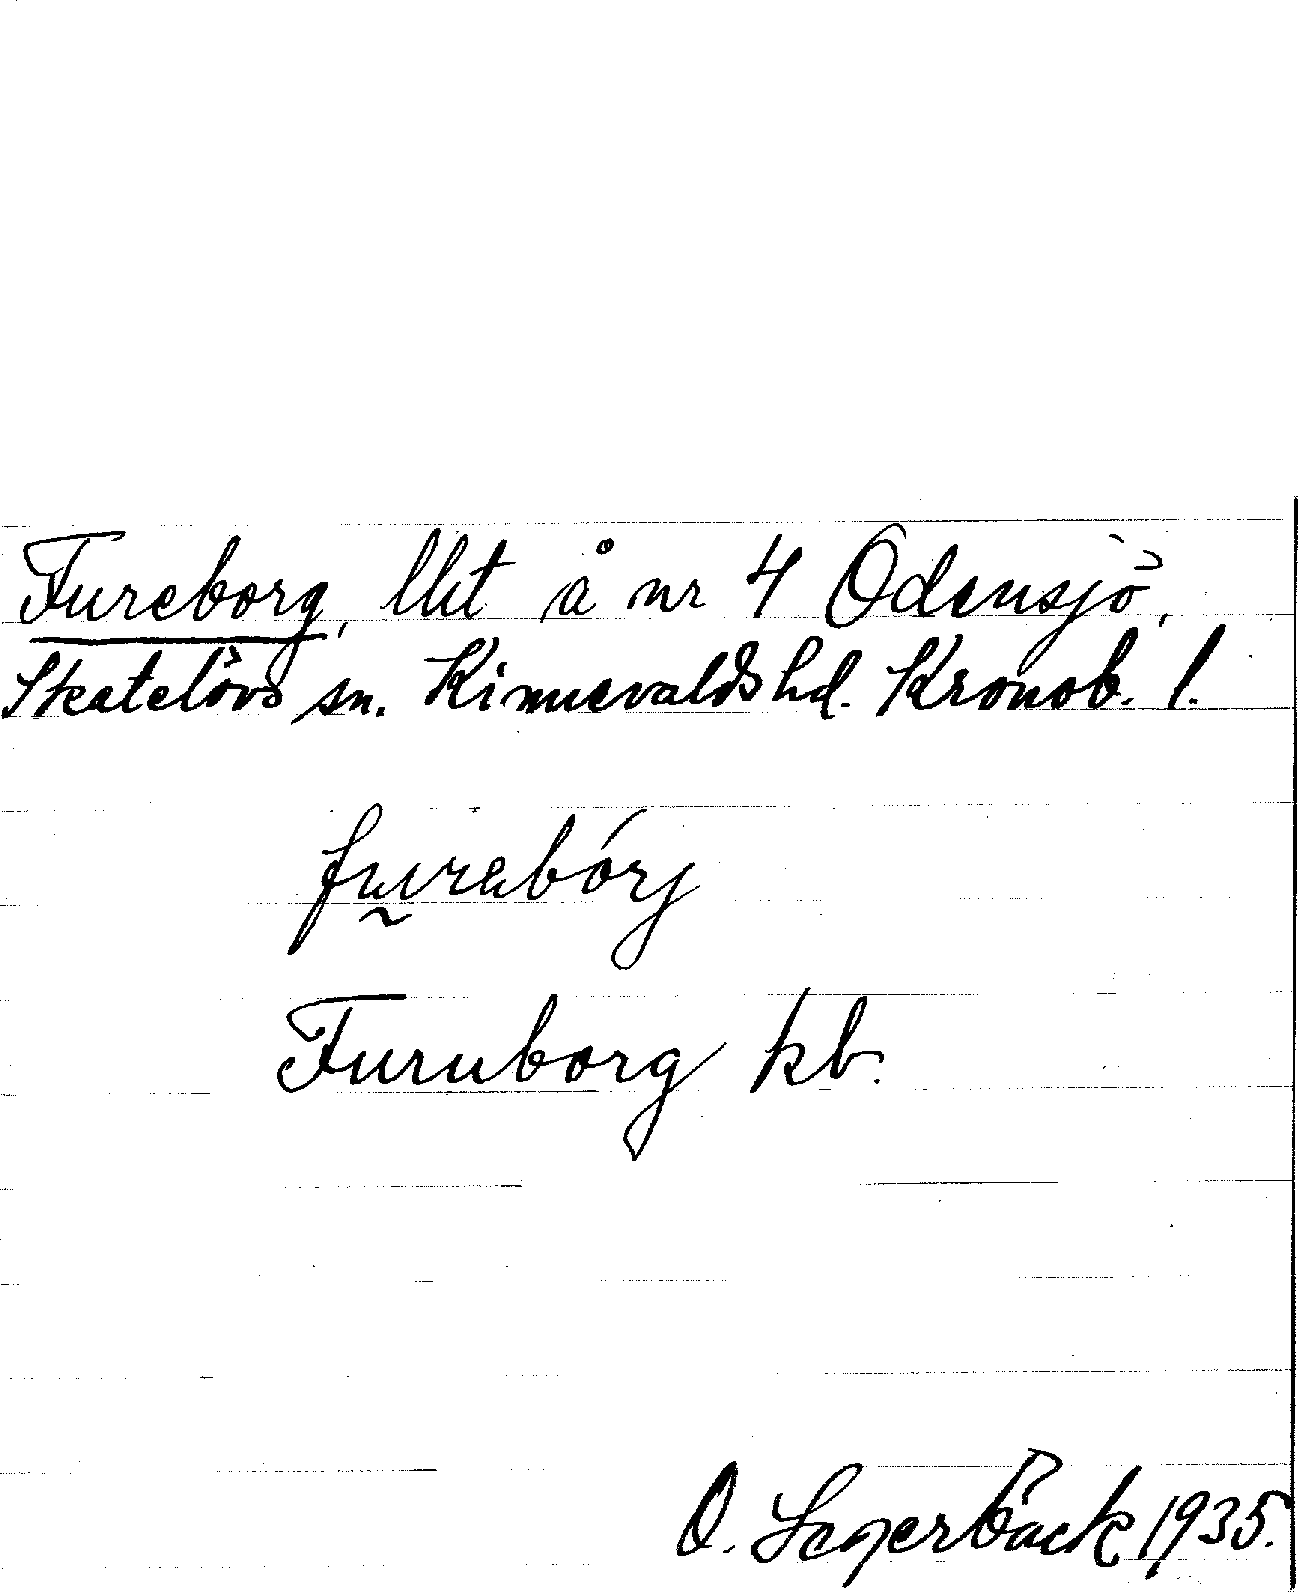 Fureborg, lht å nr 4 Odensjö,
Skatelövs sn. Kinnevalds hd. Kronob. l.
furabórj
Furuborg kb.
O. Segerbäck 1935.